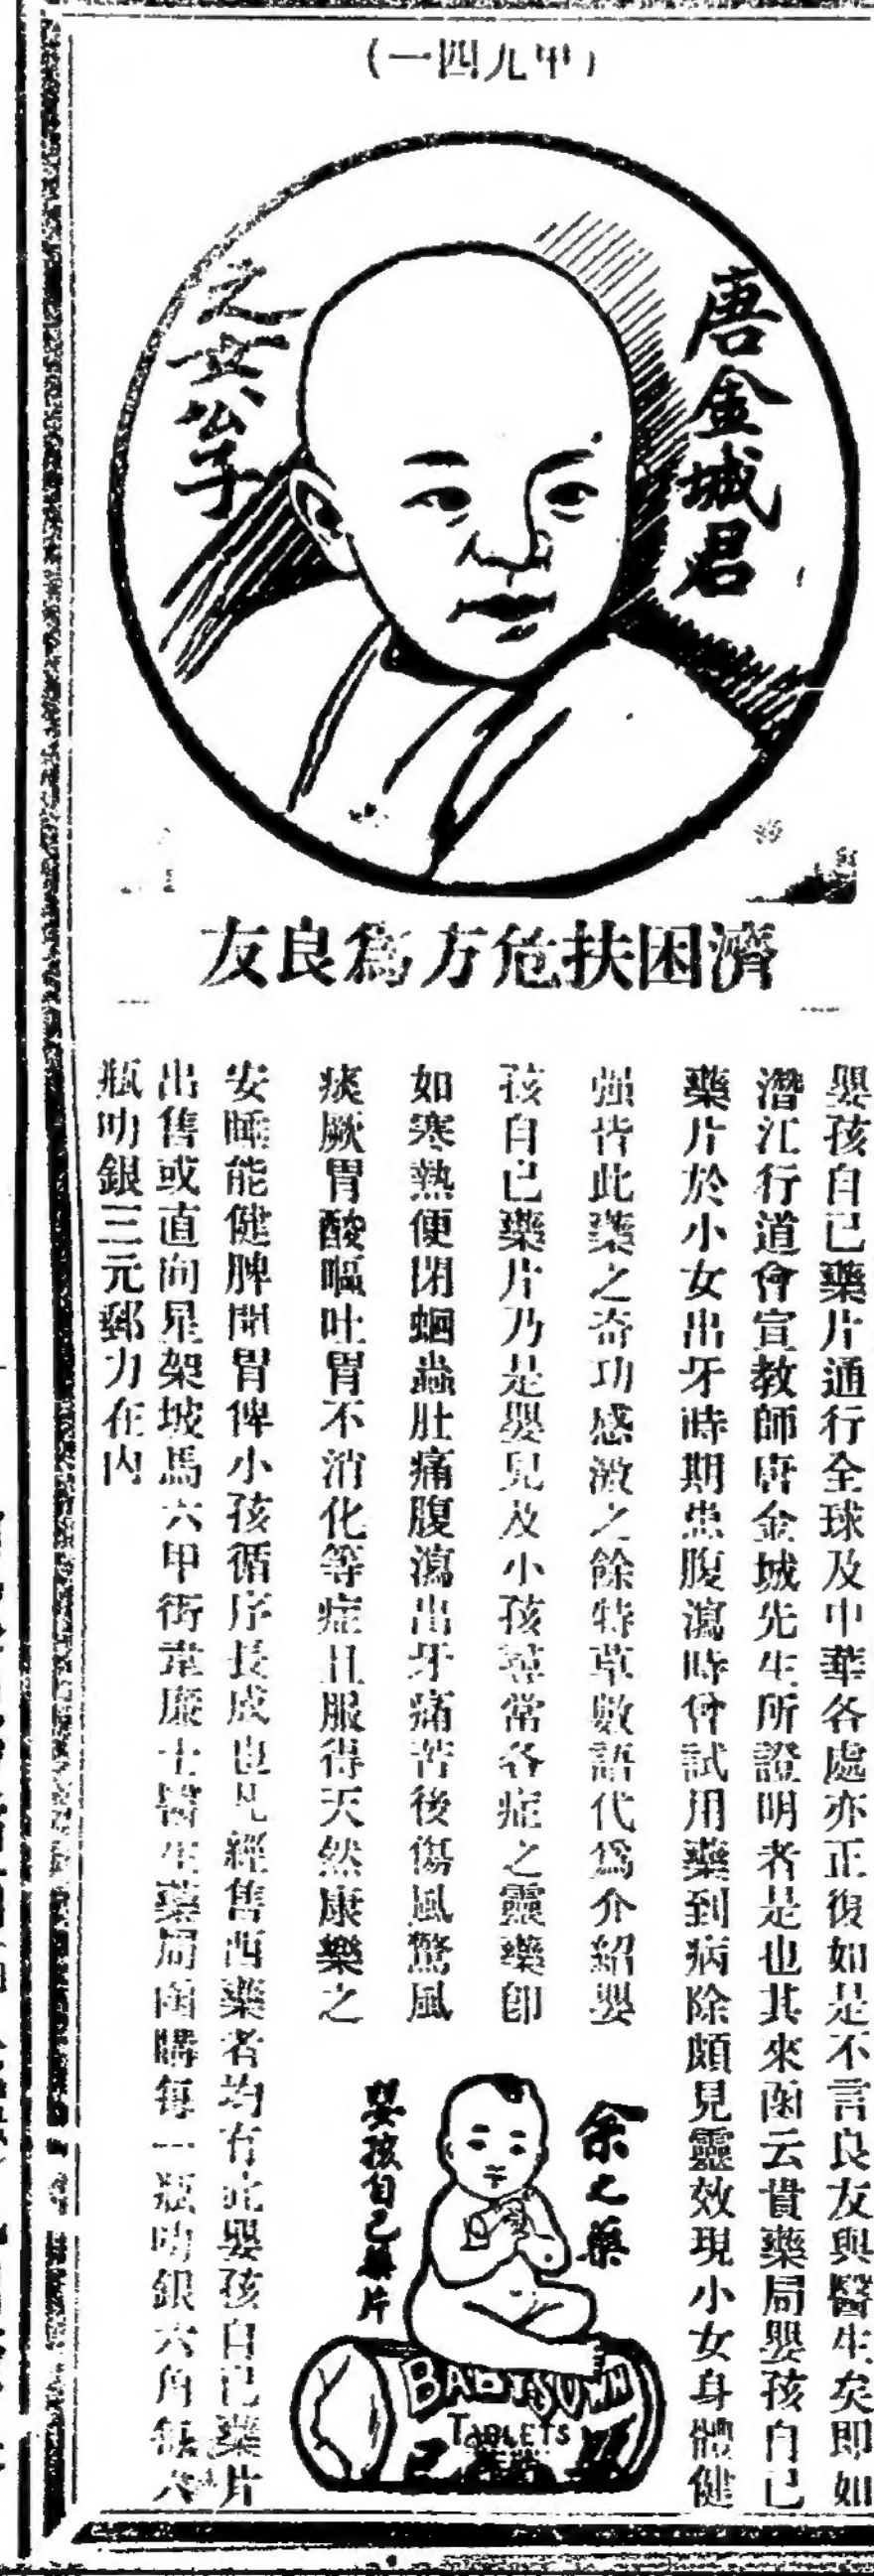 (一四九甲)
唐金城君
之女公子
濟困扶危方為良友
嬰孩自己藥片通行全球及中華各處亦正復如是不言良友與醫生矣即如
潛江行道會宣教師唐金城先生所證明者是也其來函云貴藥局嬰孩自己
藥片於小女出牙時期患腹瀉時曾試用藥到病除頗見靈效現小女身體健
强皆此藥之奇功感激之餘特草數語代為介紹嬰
孩自己藥片乃是嬰兒及小孩尋常各症之靈藥即
如寒熱便閉蛔蟲肚痛腹瀉出牙痛苦後傷風驚風
痰厥胃酸嘔吐胃不消化等症且服得天然康樂之
安睡能健脾開胃俾小孩循序長成也凡經售西藥者均有此嬰孩自己藥片
出售或直向星架坡馬六甲街韋廉士醫生藥局函購每一瓶叻銀六角每六
瓶叻銀三元郵力在內
余之藥
嬰孩自己藥片
BABY'S OWN
TABLETS